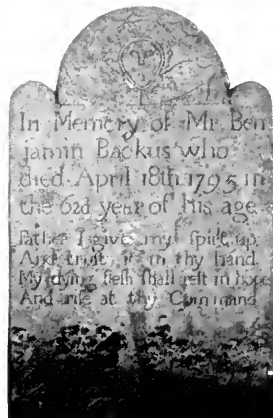 In Memory of Mr. Ben
jamin Backus who
died April 18th 1795 in
the 62d year of his age
Father I give my spirit up
And trust it in thy hand
My dying flesh shall rest in hope
And rise at thy Command